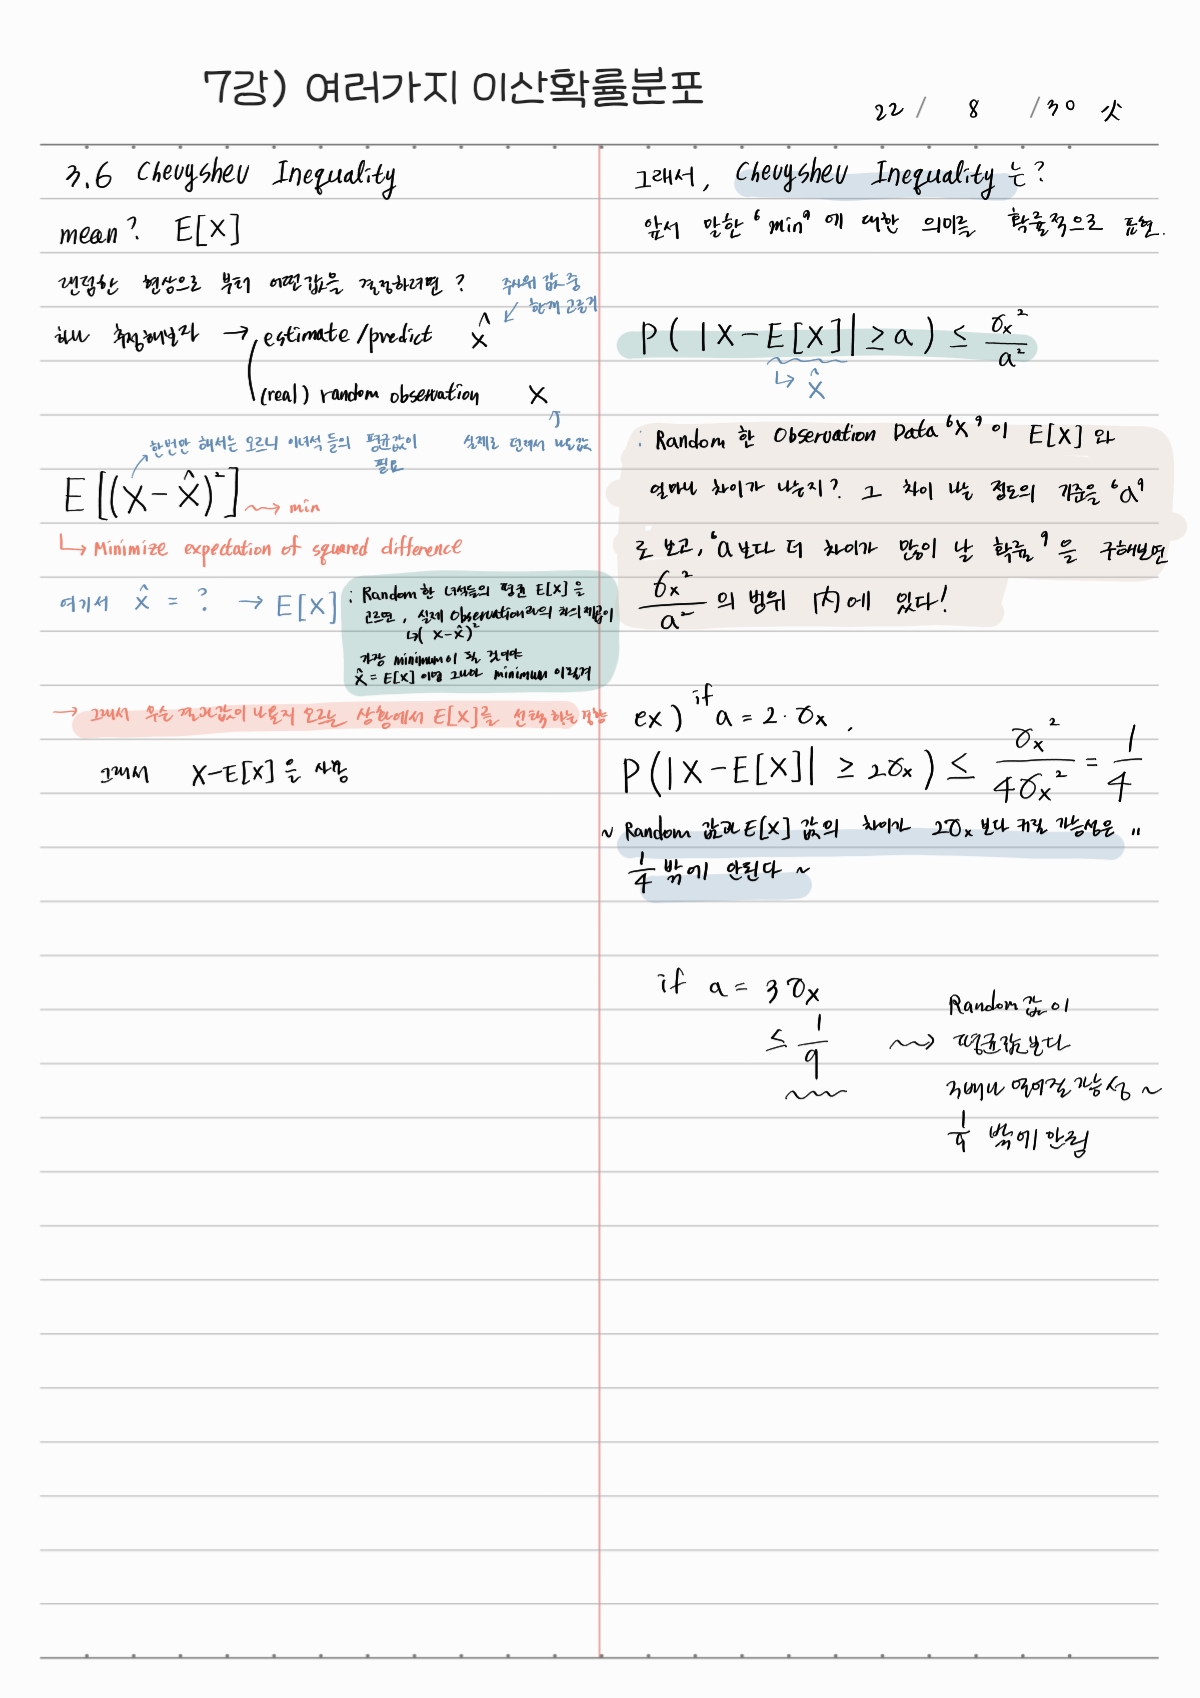 7강) 여러가지 이산확률분포
22 / 8 / 30 火
3.6 Chevyshev Inequality
mean? E[X]
랜덤한 현상으로 부터 어떤값을 결정하려면?
주사위 값 중
한개 고르기
하나 추정해보자 → estimate/predict X̂
(real) random observation X
한번만 해서는 모르니 이녀석들의 평균값이
필요
실제로 던져서 나온값
E[(X-X̂)²] → min
↳ Minimize expectation of squared difference
여기서 X̂ = ? → E[X]
: Random 한 녀석들의 평균 E[X]을
고르면, 실제 Observation과의 차의 제곱이
↳(X-X̂)²
가장 minimum이 될 것이야
X̂ = E[X] 이면 그나마 minimum 이될걸
→ 그래서 무슨 결과값이 나올지 모르는 상황에서 E[X]를 선택하는
그래서 X-E[X]을 사용
그래서, Chevyshev Inequality 는?
앞서 말한 ‘min’에 대한 의미를 확률적으로 표현.
P(|X-E[X]| ≥ a) ≤ σx²/a²
↳ X̂
: Random 한 Observation Data ‘X’이 E[X] 와
얼마나 차이가 나는지? 그 차이 나는 정도의 기준을 ‘a’
로 보고, ‘a보다 더 차이가 많이 날 확률’을 구해보면
σx²/a² 의 범위 內에 있다!
ex) if a = 2·σx,
P(|X-E[X]| ≥ 2σx) ≤ σx²/4σx² = 1/4
~ Random 값과 E[X] 값의 차이가 2σx 보다 커질 가능성은 "
1/4 밖에 안된다 ~
if a = 3σx
≤ 1/9
→ Random 값이
평균값보다
3배나 멀어질 가능성 ~
1/9 밖에 안됨